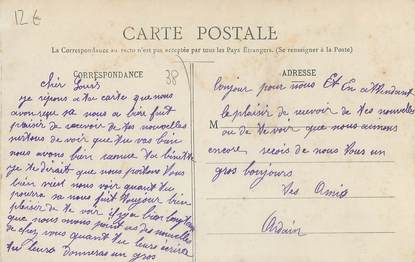 12 €
CARTE POSTALE
La Correspondance au recto n'est pas acceptée par tous les Pays Étrangers. (Se renseigner à la Poste)
CORRESPONDANCE
38
Cher Louis
je répons a ta carte que nous
avons reçu sa nous a bien fait
plaisir de recevoir de tes nouvelles
surtous de voir que tu vas bien
nous avons bien
je te dirait que nous portons tous
bien vient nous voir quant tu
pourra sa nous fait toujour bien
plaisir de te voir il y a bien longtemps
que nous avons point des nouvelles
de chez vous quant tu leurs écrira
tu leurs donneras un gros
ADRESSE
bonjour pour nous Et En attendant
le plaisir de recevoir de tes nouvelles
M
ou de te voir que nous aimons
encore recois de nous tous un
gros bonjours
tes Amis